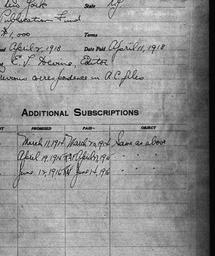 York State NY
Publication Fund
$1,000 Terms
April 2, 1918 Date Paid April 11, 1918
E. T. Devine, Editor
correspondence in A.C. files
ADDITIONAL SUBSCRIPTIONS
PROMISED PAID OBJECT
March 11, 1914 March 20, 1914 Same as above
April 19, 1915 April 23, 1915 " "
June 12, 1916 June 14, 1916 " "